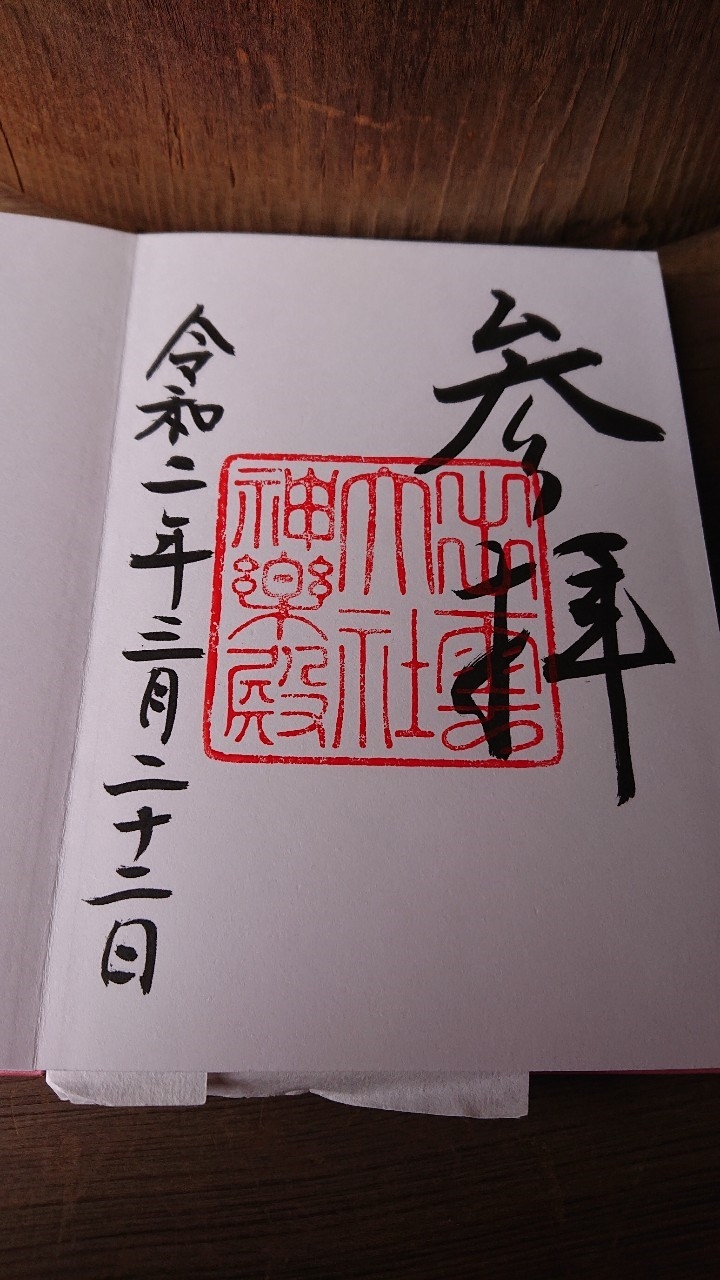 参拝
出雲
大社
神楽殿
令和二年三月二十二日